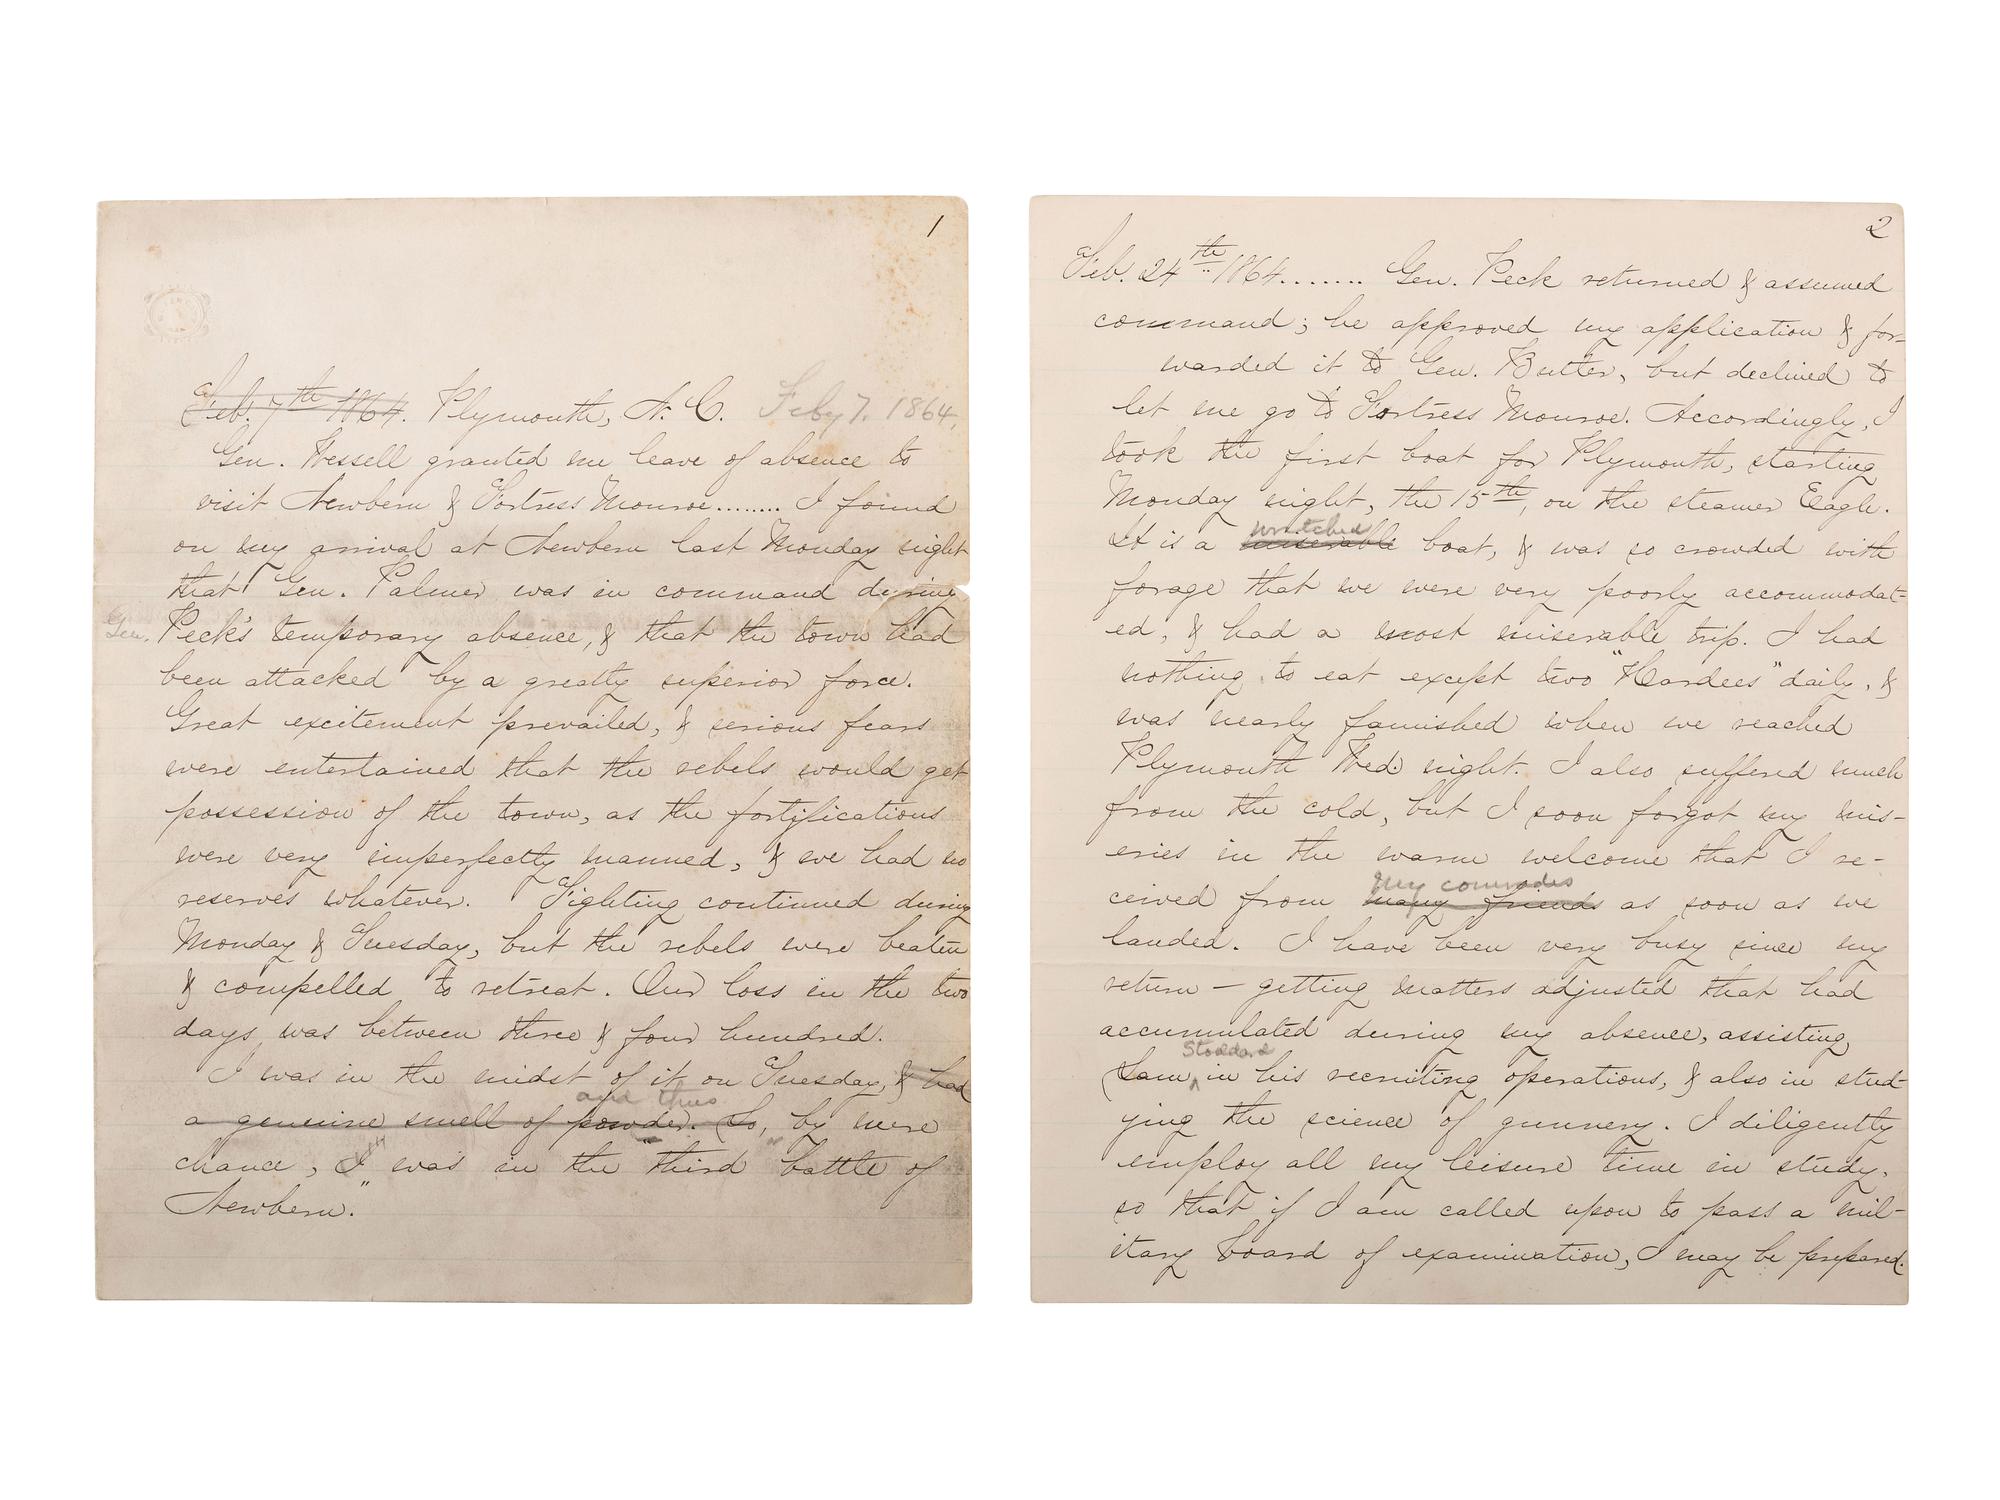 1
Feb. 7th 1864. Plymouth, N. C. Feby 7. 1864.
Gen. Wessell granted me leave of absence to
visit Newbern & Fortress Monroe........ I found
on my arrival at Newbern last Monday night
that Gen. Palmer was in command during
Gen. Peck's temporary absence, & that the town had
been attacked by a greatly superior force.
Great excitement prevailed, & serious fears
were entertained that the rebels would get
possession of the town, as the fortifications
were very imperfectly manned, & we had no
reserves whatever. Fighting continued during
Monday & Tuesday, but the rebels were beaten
& compelled to retreat. Our loss in the two
days was between three & four hundred.
I was in the midst of it on Tuesday, & had
and thus
a genuine smell of powder. So, by mere
chance, I was in the "third" battle of
Newbern."
2
Feb. 24th 1864........ Gen. Peck returned & assumed
command; he approved my application & for-
warded it to Gen. Butler, but declined to
let me go to Fortress Monroe. Accordingly, I
took the first boat for Plymouth, starting
Monday night, the 15th, on the steamer Eagle.
wretched
It is a miserable boat, & was so crowded with
forage that we were very poorly accommodat-
ed, & had a most miserable trip. I had
nothing to eat except two "Hardees" daily, &
was nearly famished when we reached
Plymouth Wed. night. I also suffered much
from the cold, but I soon forgot my mis-
eries in the warm welcome that I re-
my comrades
ceived from many friends as soon as we
landed. I have been very busy since my
return – getting matters adjusted that had
accumulated during my absence, assisting
Stoddard
Sam in his recruiting operations, & also in stud-
ying the science of gunnery. I diligently
employ all my leisure time in study,
so that if I am called upon to pass a mil-
itary board of examination, I may be prepared.